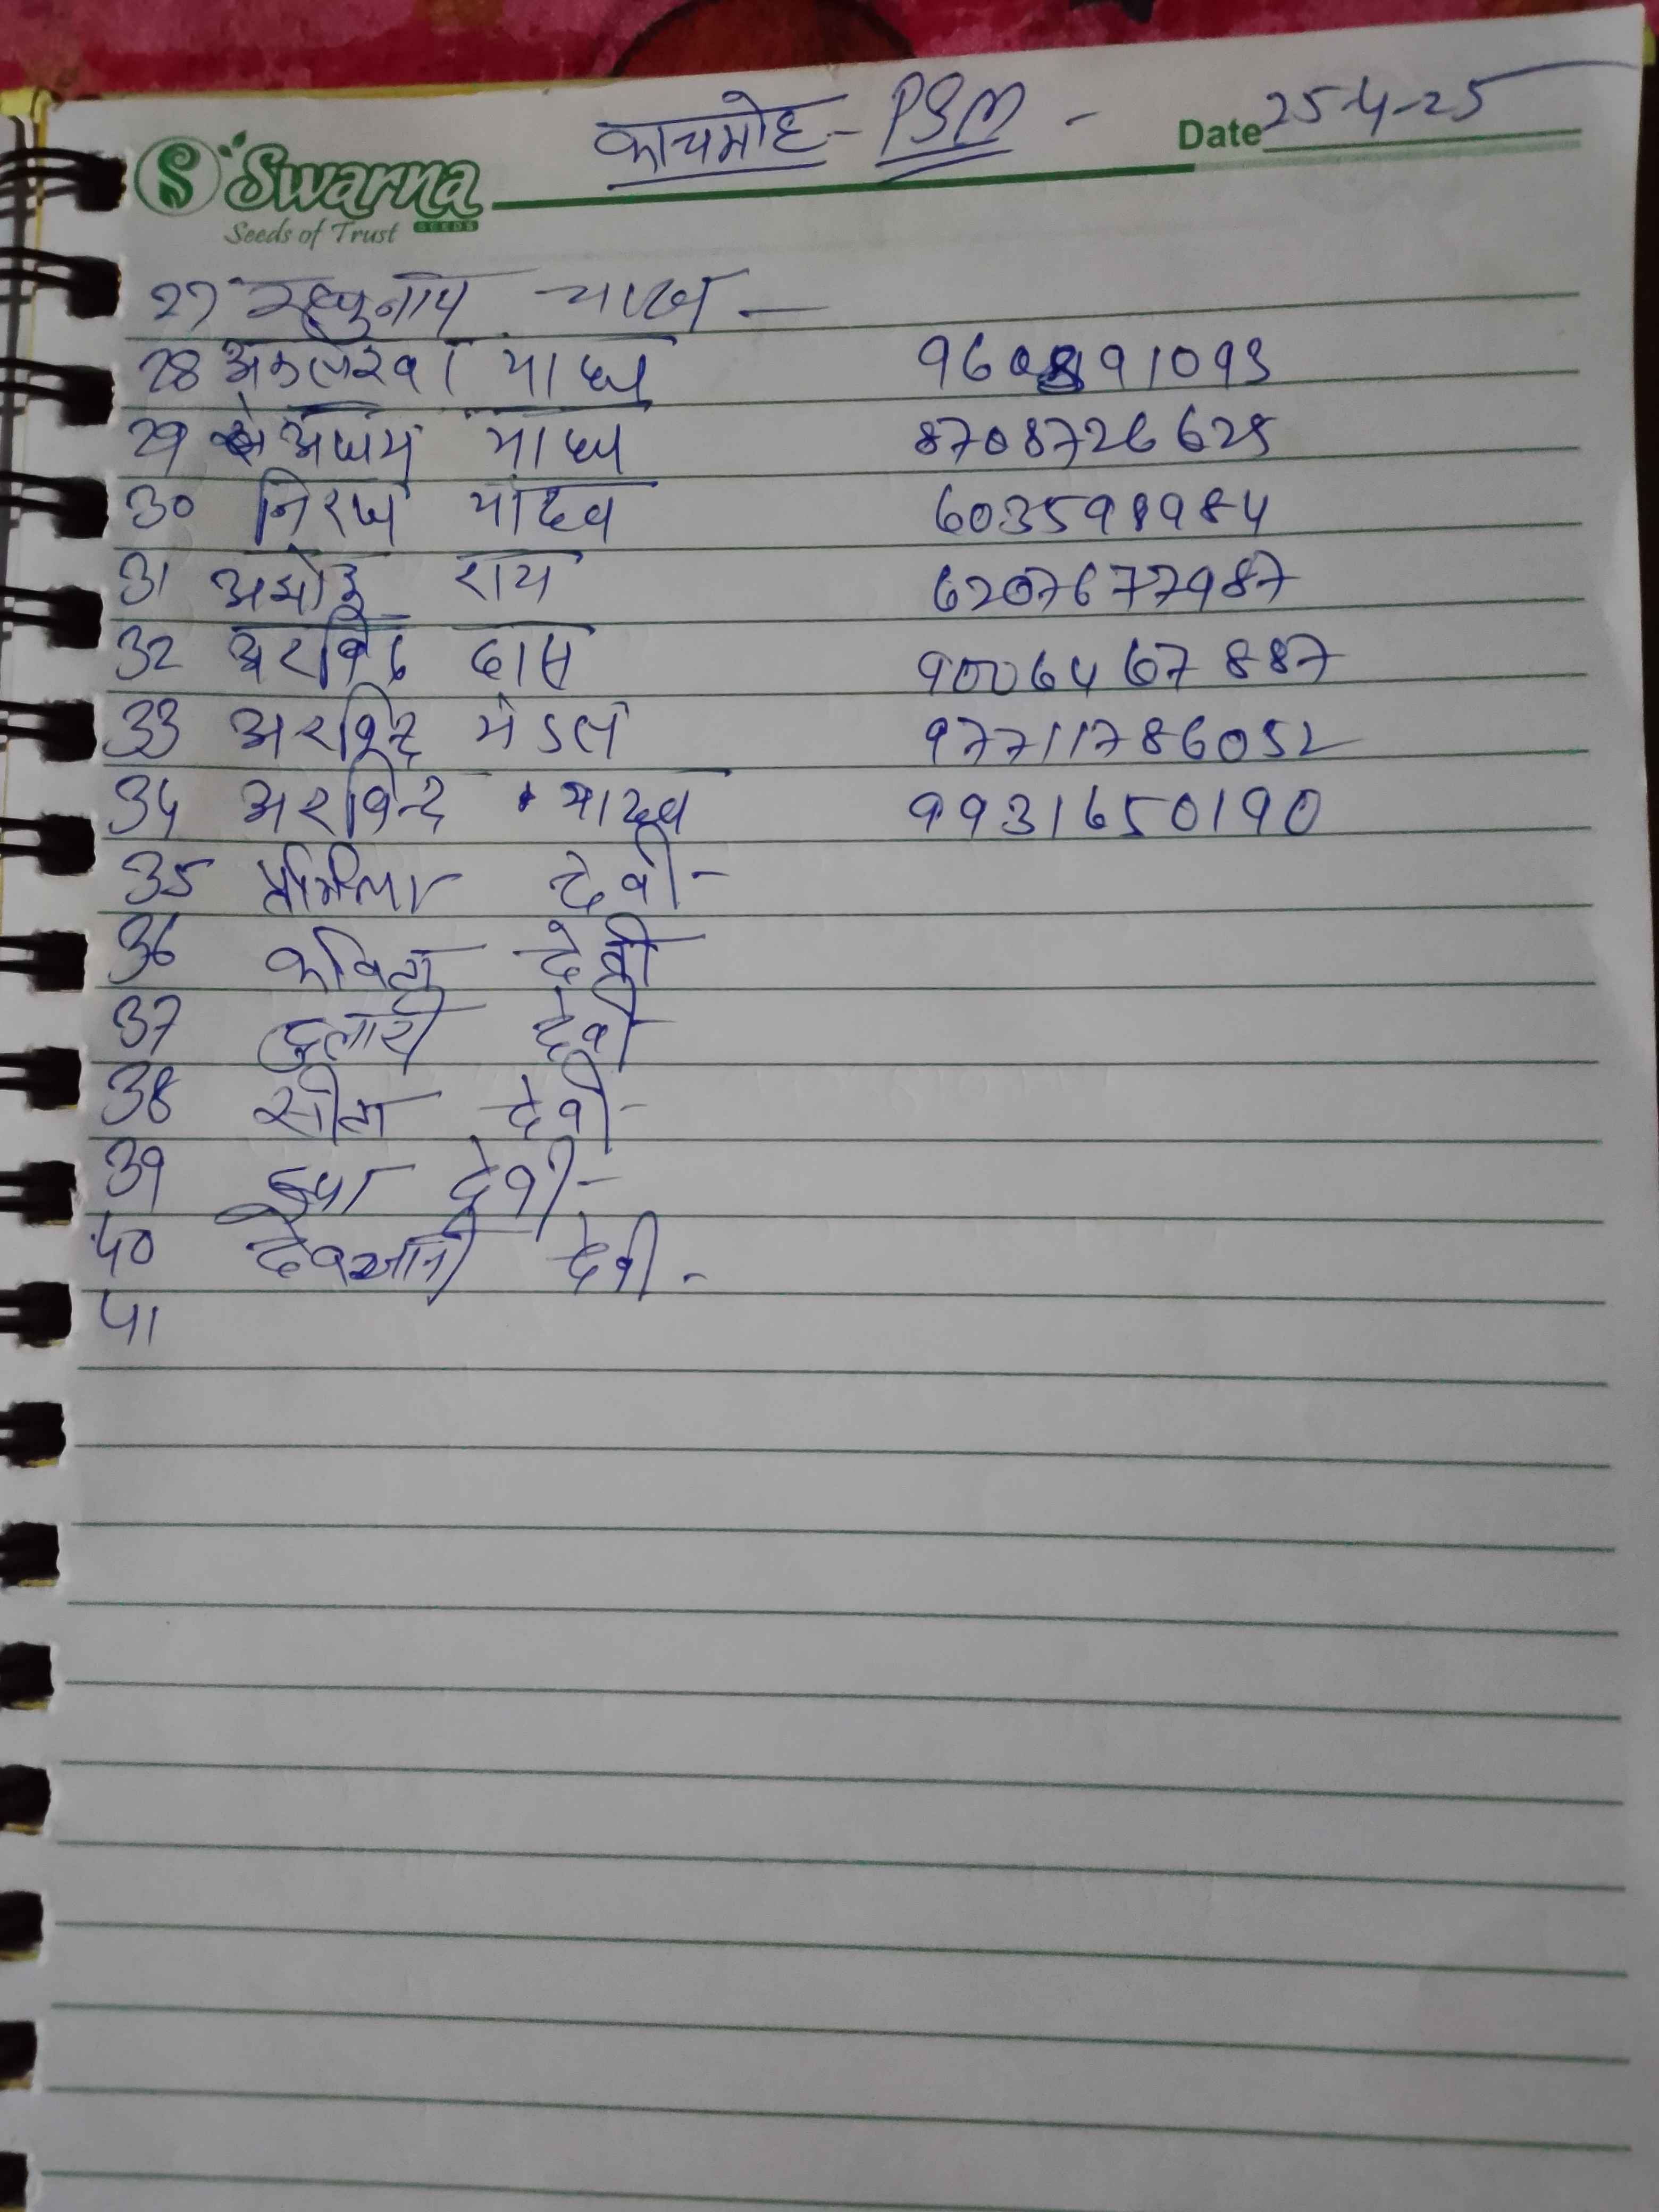 काचमोह - PSM -
Date 25-4-25
Swarna
SEEDS
Seeds of Trust
27 रघुनाथ यादव -
28 अकलेश्वर यादव 9608891093
29 यादव 8708726625
30 निरज यादव 6035999984
31 अशोक राय 6207677987
32 अरविंद दास 9006467887
33 अरविन्द मंडल 97711786052
34 अरविन्द यादव 9931650190
35 प्रमिला देवी -
36 कविता देवी
37 दुलारी देवी
38 सीता देवी -
39 रूपा देवी -
40 देवी -
41